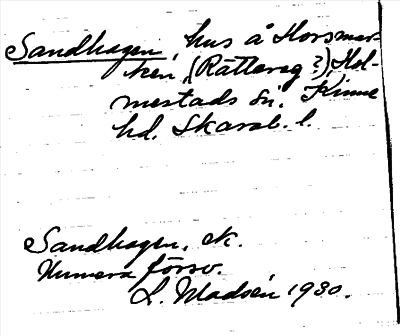 Sandhagen, hus å Horsmar-
ken, (Rättareg?) Hol-
mestads sn. Kinne
hd. Skarab. l.
Sandhagen, ek.
Numera försv.
L. Madsén 1930.